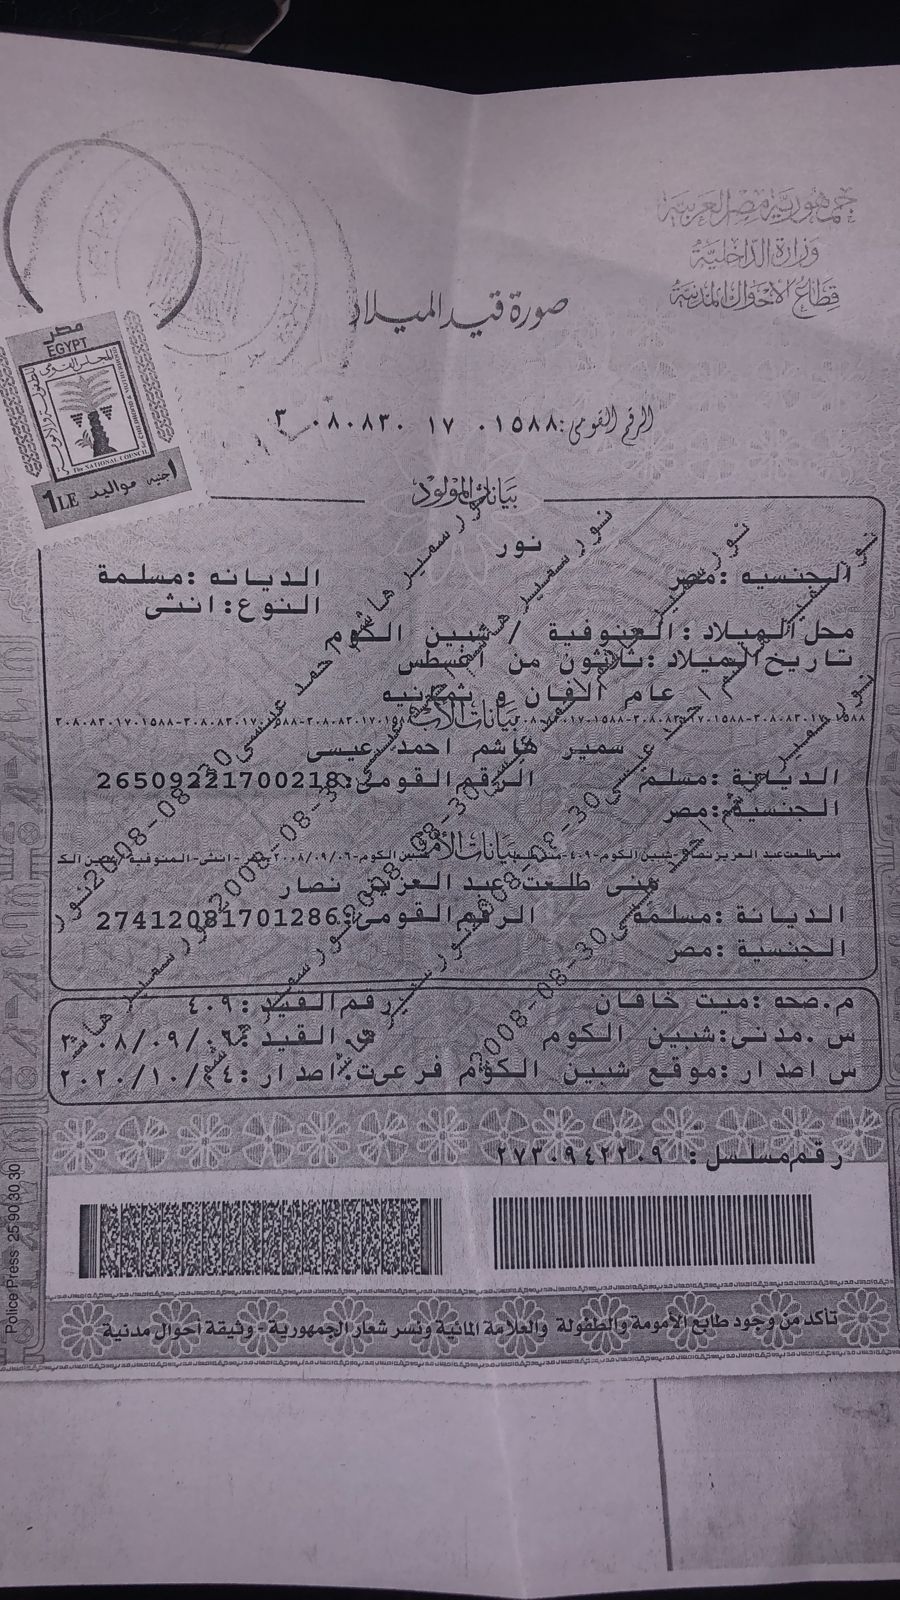 جمهورية مصر العربية
وزارة الداخلية
قطاع الأحوال المدنية
صورة قيد الميلاد
مصر
EGYPT
The NATIONAL COUNCIL for CHILDHOOD & MOTHERHOOD
1LE مواليد 1جنيه
الرقم القومى: ٣ ٠٨٠٨٣٠ ١٧ ٠١٥٨٨
بيانات المولود
نور
الجنسيه :مصر الديانه :مسلمة
النوع:انثى
محل الميلاد :المنوفية / شبين الكوم
تاريخ الميلاد :ثلاثون من اغسطس
عام الفان و ثمانيه
بيانات الأب
سمير هاشم احمد عيسى
الديانة :مسلم الرقم القومى:26509221700218
الجنسية :مصر
بيانات الأم
منى طلعت عبد العزيز نصار
الديانة :مسلمة الرقم القومى:27412081701286
الجنسية :مصر
م.صحه :ميت خاقان رقم القيد :٤٠٩
س.مدنى:شبين الكوم ت القيد :٢٠٠٨/٠٩/٠٦
س اصدار :موقع شبين الكوم فرعى ت.اصدار :٢٠٢٠/١٠/٠٤
رقم مسلسل : ٢٧٣٠٩٤٢٢٠٩
Police Press 25 90 30 30
تأكد من وجود طابع الأمومة والطفولة والعلامة المائية ونسر شعار الجمهورية - وثيقة أحوال مدنية